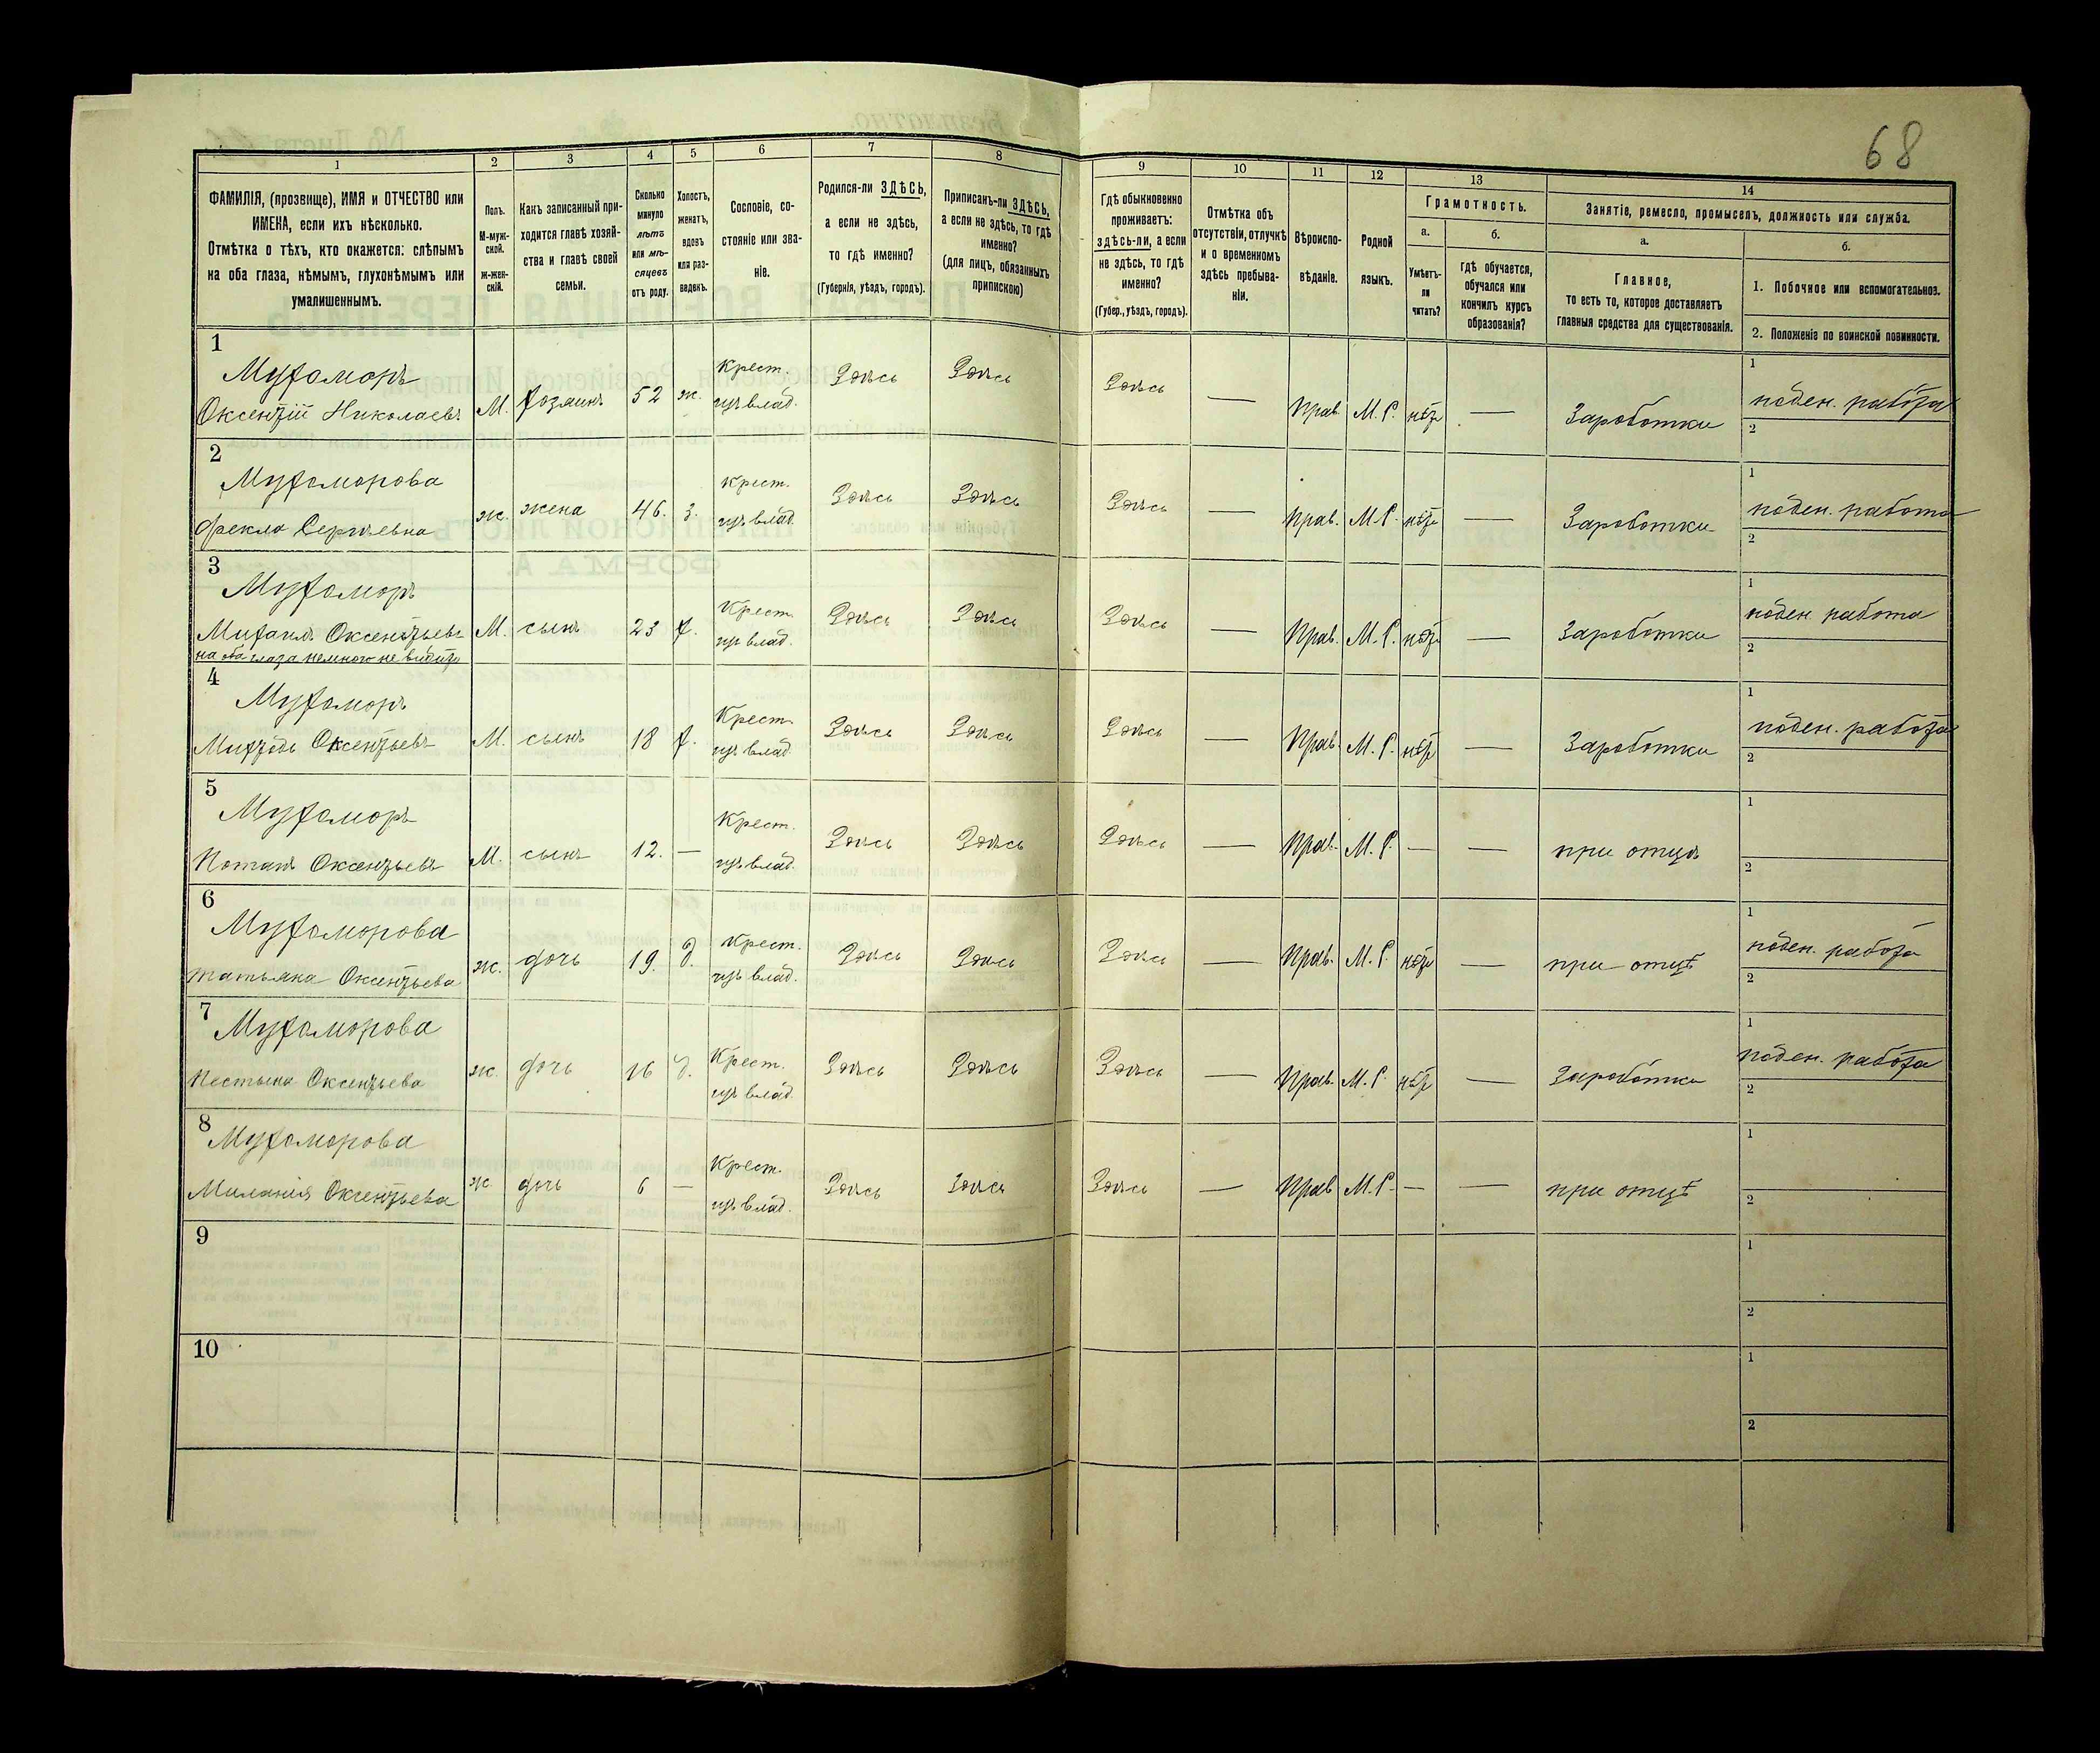 68
1
2
3
4
5
6
7
8
9
10
11
12
13
14
ФАМИЛІЯ, (прозвище), ИМЯ и ОТЧЕСТВО или
ИМЕНА, если ихъ нѣсколько.
Отмѣтка о тѣхъ, кто окажется: слѣпымъ
на оба глаза, нѣмымъ, глухонѣмымъ или
умалишеннымъ.
Полъ.
М-муж-
ской.
ж-жен-
скій.
Какъ записанный при-
ходится главѣ хозяй-
ства и главѣ своей
семьи.
Сколько
минуло
лѣтъ
или мѣ-
сяцевъ
отъ роду.
Холостъ,
женатъ,
вдовъ
или раз-
веденъ.
Сословіе, со-
стояніе или зва-
ніе.
Родился-ли ЗДѢСЬ,
а если не здѣсь,
то гдѣ именно?
(Губернія, уѣздъ, городъ).
Приписанъ-ли ЗДѢСЬ,
а если не здѣсь, то гдѣ
именно?
(для лицъ, обязанныхъ
припискою)
Гдѣ обыкновенно
проживаетъ:
здѣсь-ли, а если
не здѣсь, то гдѣ
именно?
(Губер., уѣздъ, городъ).
Отмѣтка объ
отсутствіи, отлучкѣ
и о временномъ
здѣсь пребыва-
ніи.
Вѣроиспо-
вѣданіе.
Родной
языкъ.
Грамотность.
а.
Умѣетъ-
ли
читать?
б.
Гдѣ обучается,
обучался или
кончилъ курсъ
образованія?
Занятіе, ремесло, промыселъ, должность или служба.
а.
Главное,
то есть то, которое доставляетъ
главныя средства для существованія.
б.
1. Побочное или вспомогательное.
2. Положеніе по воинской повинности.
1
Мухоморъ
Оксентій Николаевъ
М. хозяинъ 52 ж. Крест. изъ влад. Здѣсь Здѣсь Здѣсь — Прав. М. Р. нѣтъ — Заработки
1
поден. работа
2
2
Мухоморова
Фекла Сергѣевна
ж. жена 46. з. Крест. изъ влад. Здѣсь Здѣсь Здѣсь — Прав. М. Р. нѣтъ — Заработки
1
поден. работа
2
3
Мухоморъ
Михаилъ Оксентьевъ
на оба глаза немного не видитъ
М. сынъ 23 х. Крест. изъ влад. Здѣсь Здѣсь Здѣсь — Прав. М. Р. нѣтъ — Заработки
1
поден. работа
2
4
Мухоморъ
Оксентьевъ
М. сынъ 18 х. Крест. изъ влад. Здѣсь Здѣсь Здѣсь — Прав. М. Р. нѣтъ — Заработки
1
поден. работа
2
5
Мухоморъ
Потапъ Оксентьевъ
М. сынъ 12. — Крест. изъ влад. Здѣсь Здѣсь Здѣсь — Прав. М. Р. — — при отцѣ
1
2
6
Мухоморова
Татьяна Оксентьева
ж. дочь 19. д. Крест. изъ влад. Здѣсь Здѣсь Здѣсь — Прав. М. Р. нѣтъ — при отцѣ
1
поден. работа
2
7
Мухоморова
Пестына Оксентьева
ж. дочь 16 д. Крест. изъ влад. Здѣсь Здѣсь Здѣсь — Прав. М. Р. нѣтъ — Заработки
1
поден. работа
2
8
Мухоморова
Миланія Оксентьева
ж. дочь 6 — Крест. изъ влад. Здѣсь Здѣсь Здѣсь — Прав М. Р. — — при отцѣ
1
2
9
1
2
10
1
2